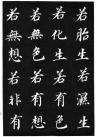 若胎生若濕生
若化生若有色
若無色若有想
若無想若非有